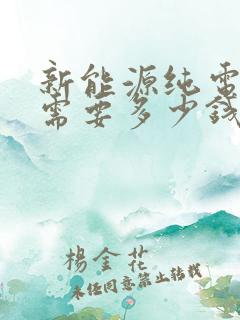 新能源纯電
需要多少钱
楊金花
未经同意禁止转载